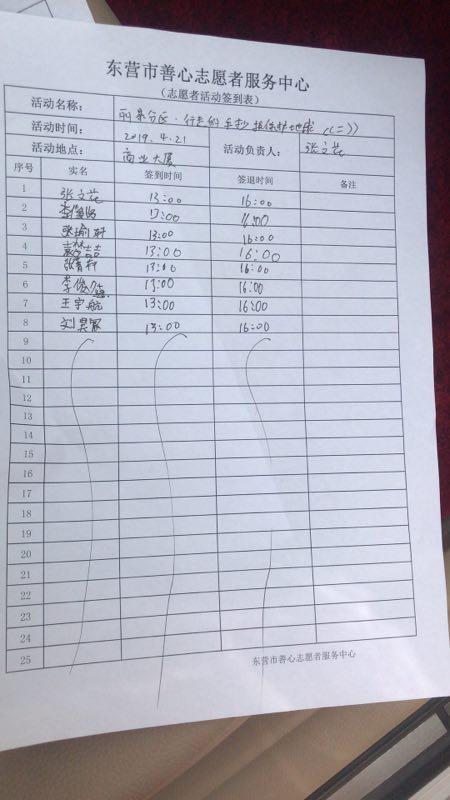 东营市善心志愿者服务中心
（志愿者活动签到表）
活动名称： 分区·行走的手抄报保护地球（（二））
活动时间： 2019.4.21 活动负责人： 张文花
活动地点： 商业大厦
序号 实名 签到时间 签退时间 备注
1 张文花 13:00 16:00
2 13:00 16:00
3 张瑜轩 13:00 16:00
4 13:00 16:00
5 13:00 16:00
6 13:00 16:00
7 王宇航 13:00 16:00
8 刘昊 13:00 16:00
9
10
11
12
13
14
15
16
17
18
19
20
21
22
23
24
25
东营市善心志愿者服务中心